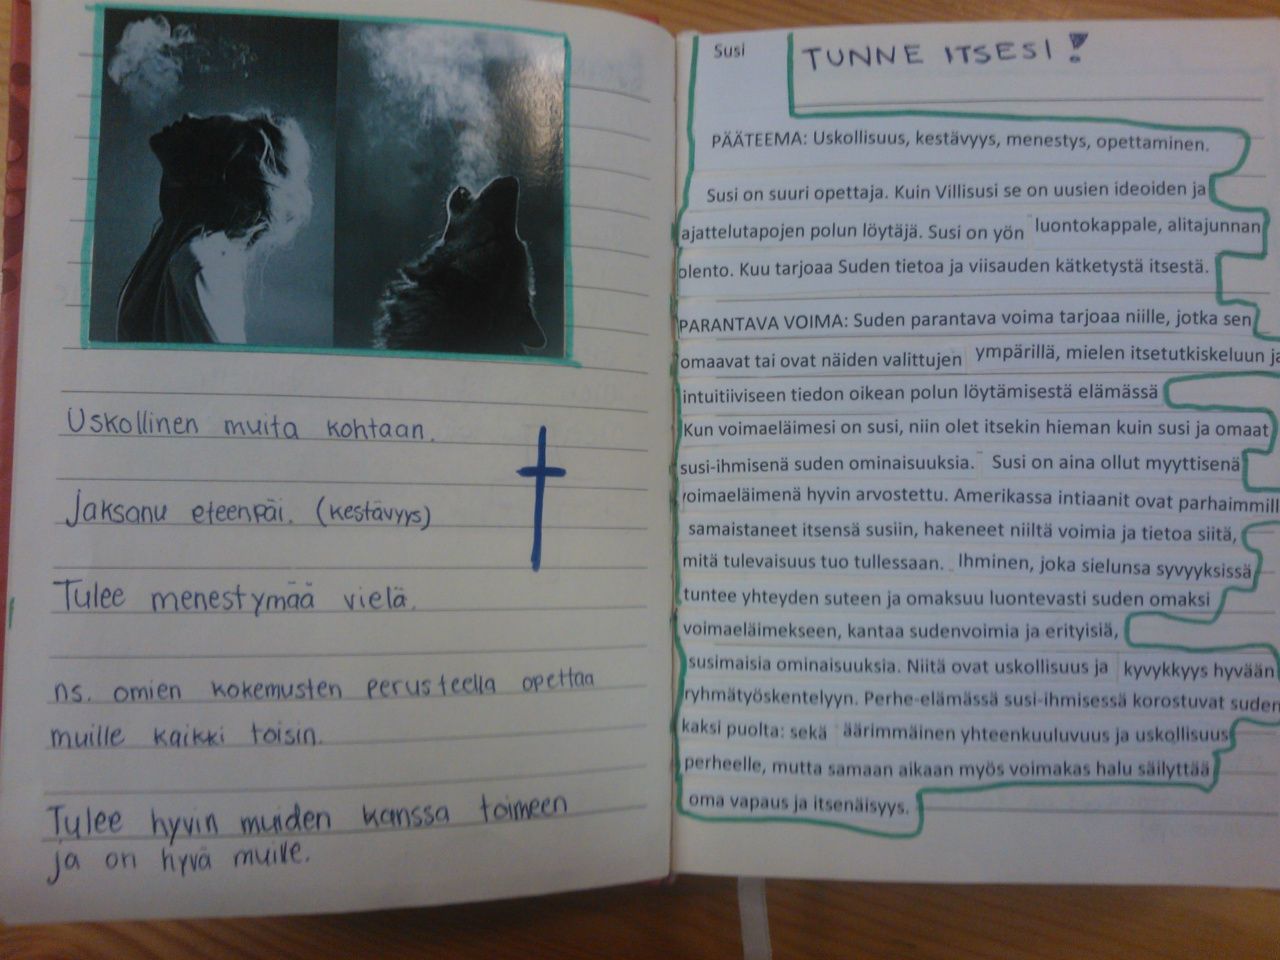 Uskollinen muita kohtaan.
Jaksanu eteenpäi. (kestävyys)
Tulee menestymää vielä.
ns. omien kokemusten perusteella opettaa
muille kaikki toisin.
Tulee hyvin muiden kanssa toimeen
ja on hyvä muille.
Susi
TUNNE ITSESI!
PÄÄTEEMA: Uskollisuus, kestävyys, menestys, opettaminen.
Susi on suuri opettaja. Kuin Villisusi se on uusien ideoiden ja
ajattelutapojen polun löytäjä. Susi on yön luontokappale, alitajunnan
olento. Kuu tarjoaa Suden tietoa ja viisauden kätketystä itsestä.
PARANTAVA VOIMA: Suden parantava voima tarjoaa niille, jotka sen
omaavat tai ovat näiden valittujen ympärillä, mielen itsetutkiskeluun ja
intuitiiviseen tiedon oikean polun löytämisestä elämässä
Kun voimaeläimesi on susi, niin olet itsekin hieman kuin susi ja omaat
susi-ihmisenä suden ominaisuuksia. Susi on aina ollut myyttisenä
voimaeläimenä hyvin arvostettu. Amerikassa intiaanit ovat parhaimmill
samaistaneet itsensä susiin, hakeneet niiltä voimia ja tietoa siitä,
mitä tulevaisuus tuo tullessaan. Ihminen, joka sielunsa syvyyksissä
tuntee yhteyden suteen ja omaksuu luontevasti suden omaksi
voimaeläimekseen, kantaa sudenvoimia ja erityisiä,
susimaisia ominaisuuksia. Niitä ovat uskollisuus ja kyvykkyys hyvään
ryhmätyöskentelyyn. Perhe-elämässä susi-ihmisessä korostuvat suden
kaksi puolta: sekä äärimmäinen yhteenkuuluvuus ja uskollisuus
perheelle, mutta samaan aikaan myös voimakas halu säilyttää
oma vapaus ja itsenäisyys.